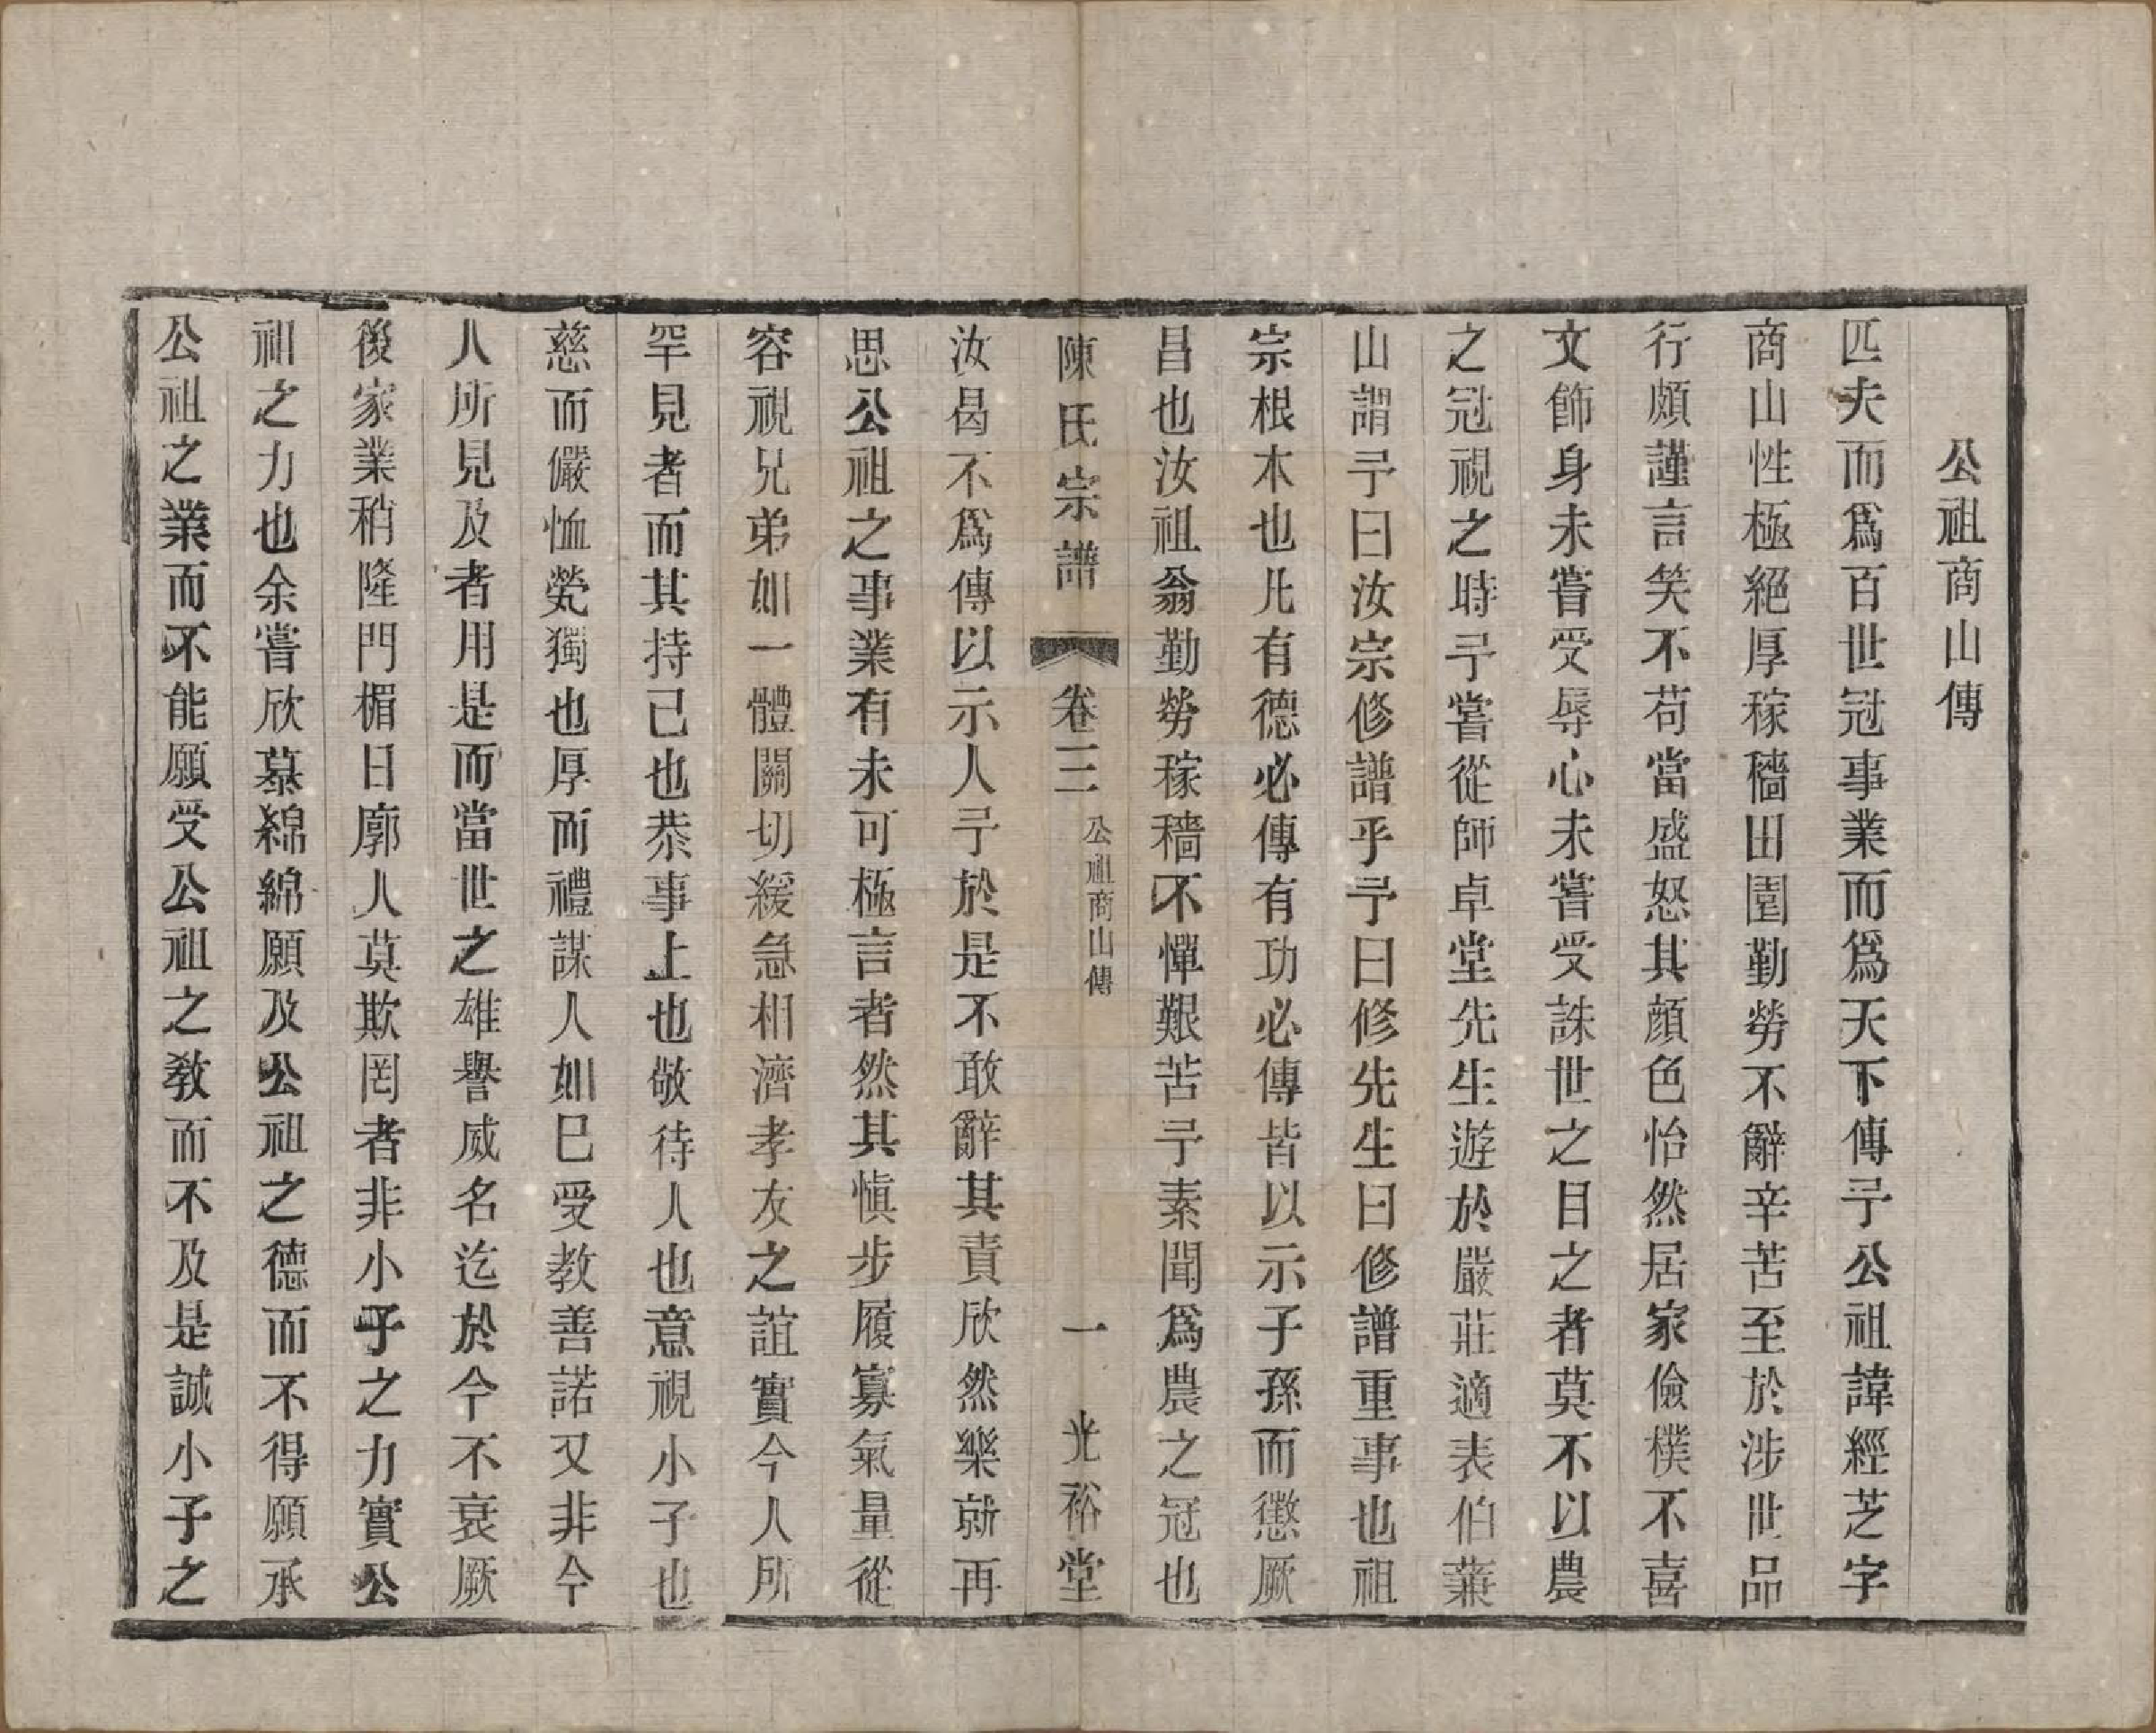 公祖商山傳
匹夫而爲百世冠事業而爲天下傳予公祖諱經芝字
商山性極絕厚稼穡田園勤勞不辭辛苦至於涉世品
行頗謹言笑不苟當盛怒其顏色怡然居家儉樸不喜
文飾身未嘗受辱心未嘗受誅世之目之者莫不以農
之冠視之時予嘗從師卓堂先生遊於嚴莊適表伯葉
山謂予曰汝宗修譜乎予曰修先生曰修譜重事也祖
宗根本也凡有德必傳有功必傳皆以示子孫而懲厥
昌也汝祖翁勤勞稼穡不憚艱苦予素聞爲農之冠也
陳氏宗譜 卷三 公祖商山傳 一 光裕堂
汝曷不爲傳以示人予於是不敢辭其責欣然樂就再
思公祖之事業有未可極言者然其愼步履寡氣量從
容視兄弟如一體關切緩急相濟孝友之誼實今人所
罕見者而其持己也恭事上也敬待人也意視小子也
慈而儼恤煢獨也厚而禮謀人如巳受教善諾又非今
人所見及者用是而當世之雄譽威名迄於今不衰厥
後家業稍隆門楣日廓人莫欺罔者非小子之力實公
祖之力也余嘗欣慕綿綿願及公祖之德而不得願承
公祖之業而不能願受公祖之教而不及是誠小子之